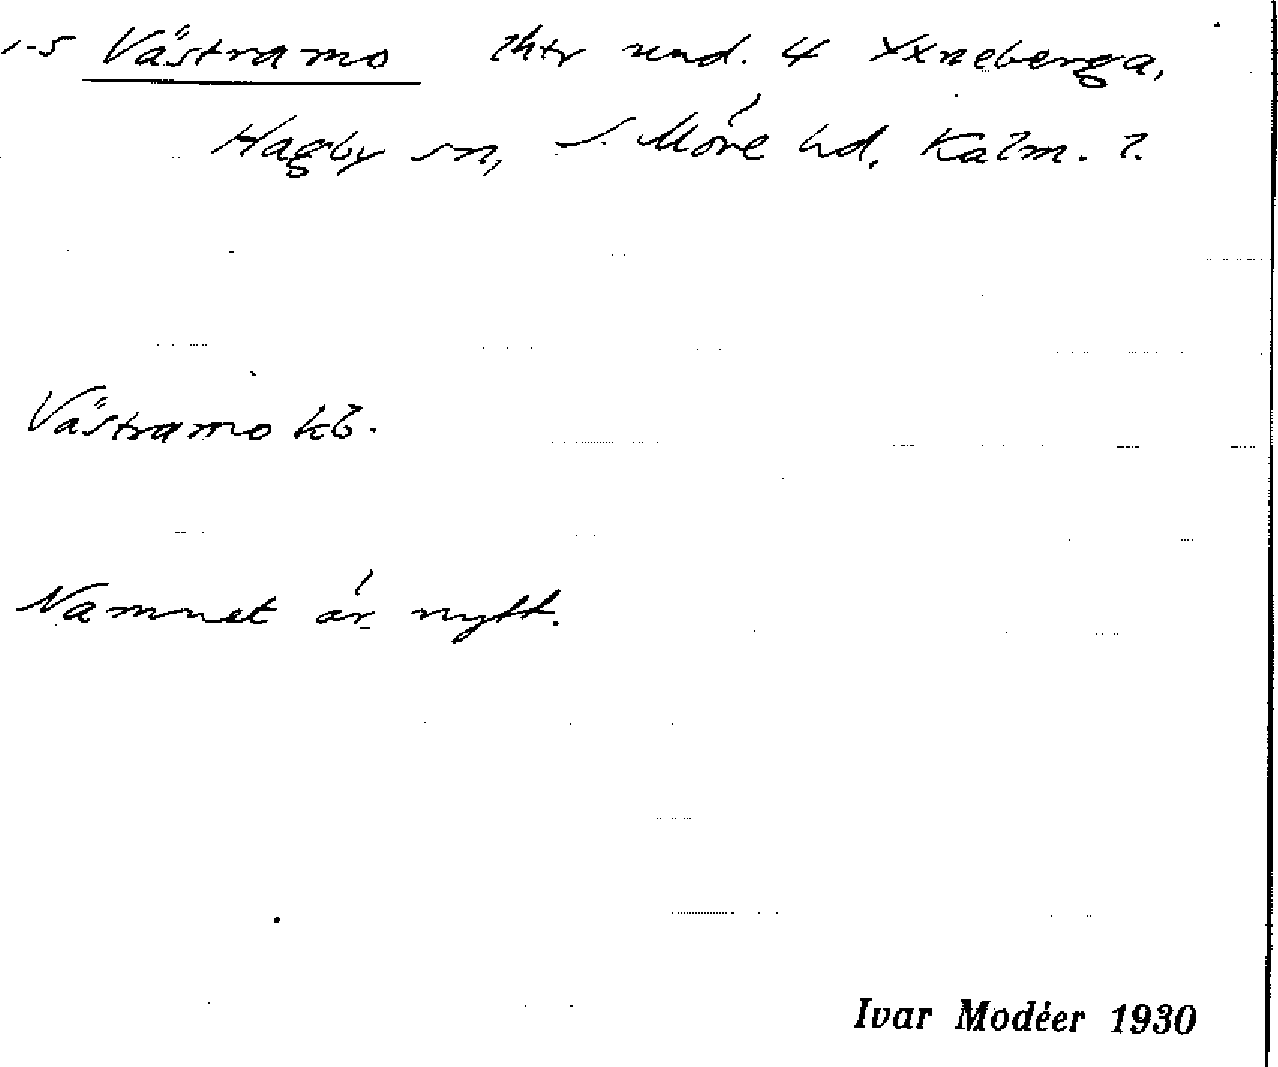 1-5 Västramo lhtr und. 4 Yxneberga,
Hagby sn, S. Möre hd, Kalm. l.
Västramo kb.
Namnet är nytt.
Ivar Modéer 1930